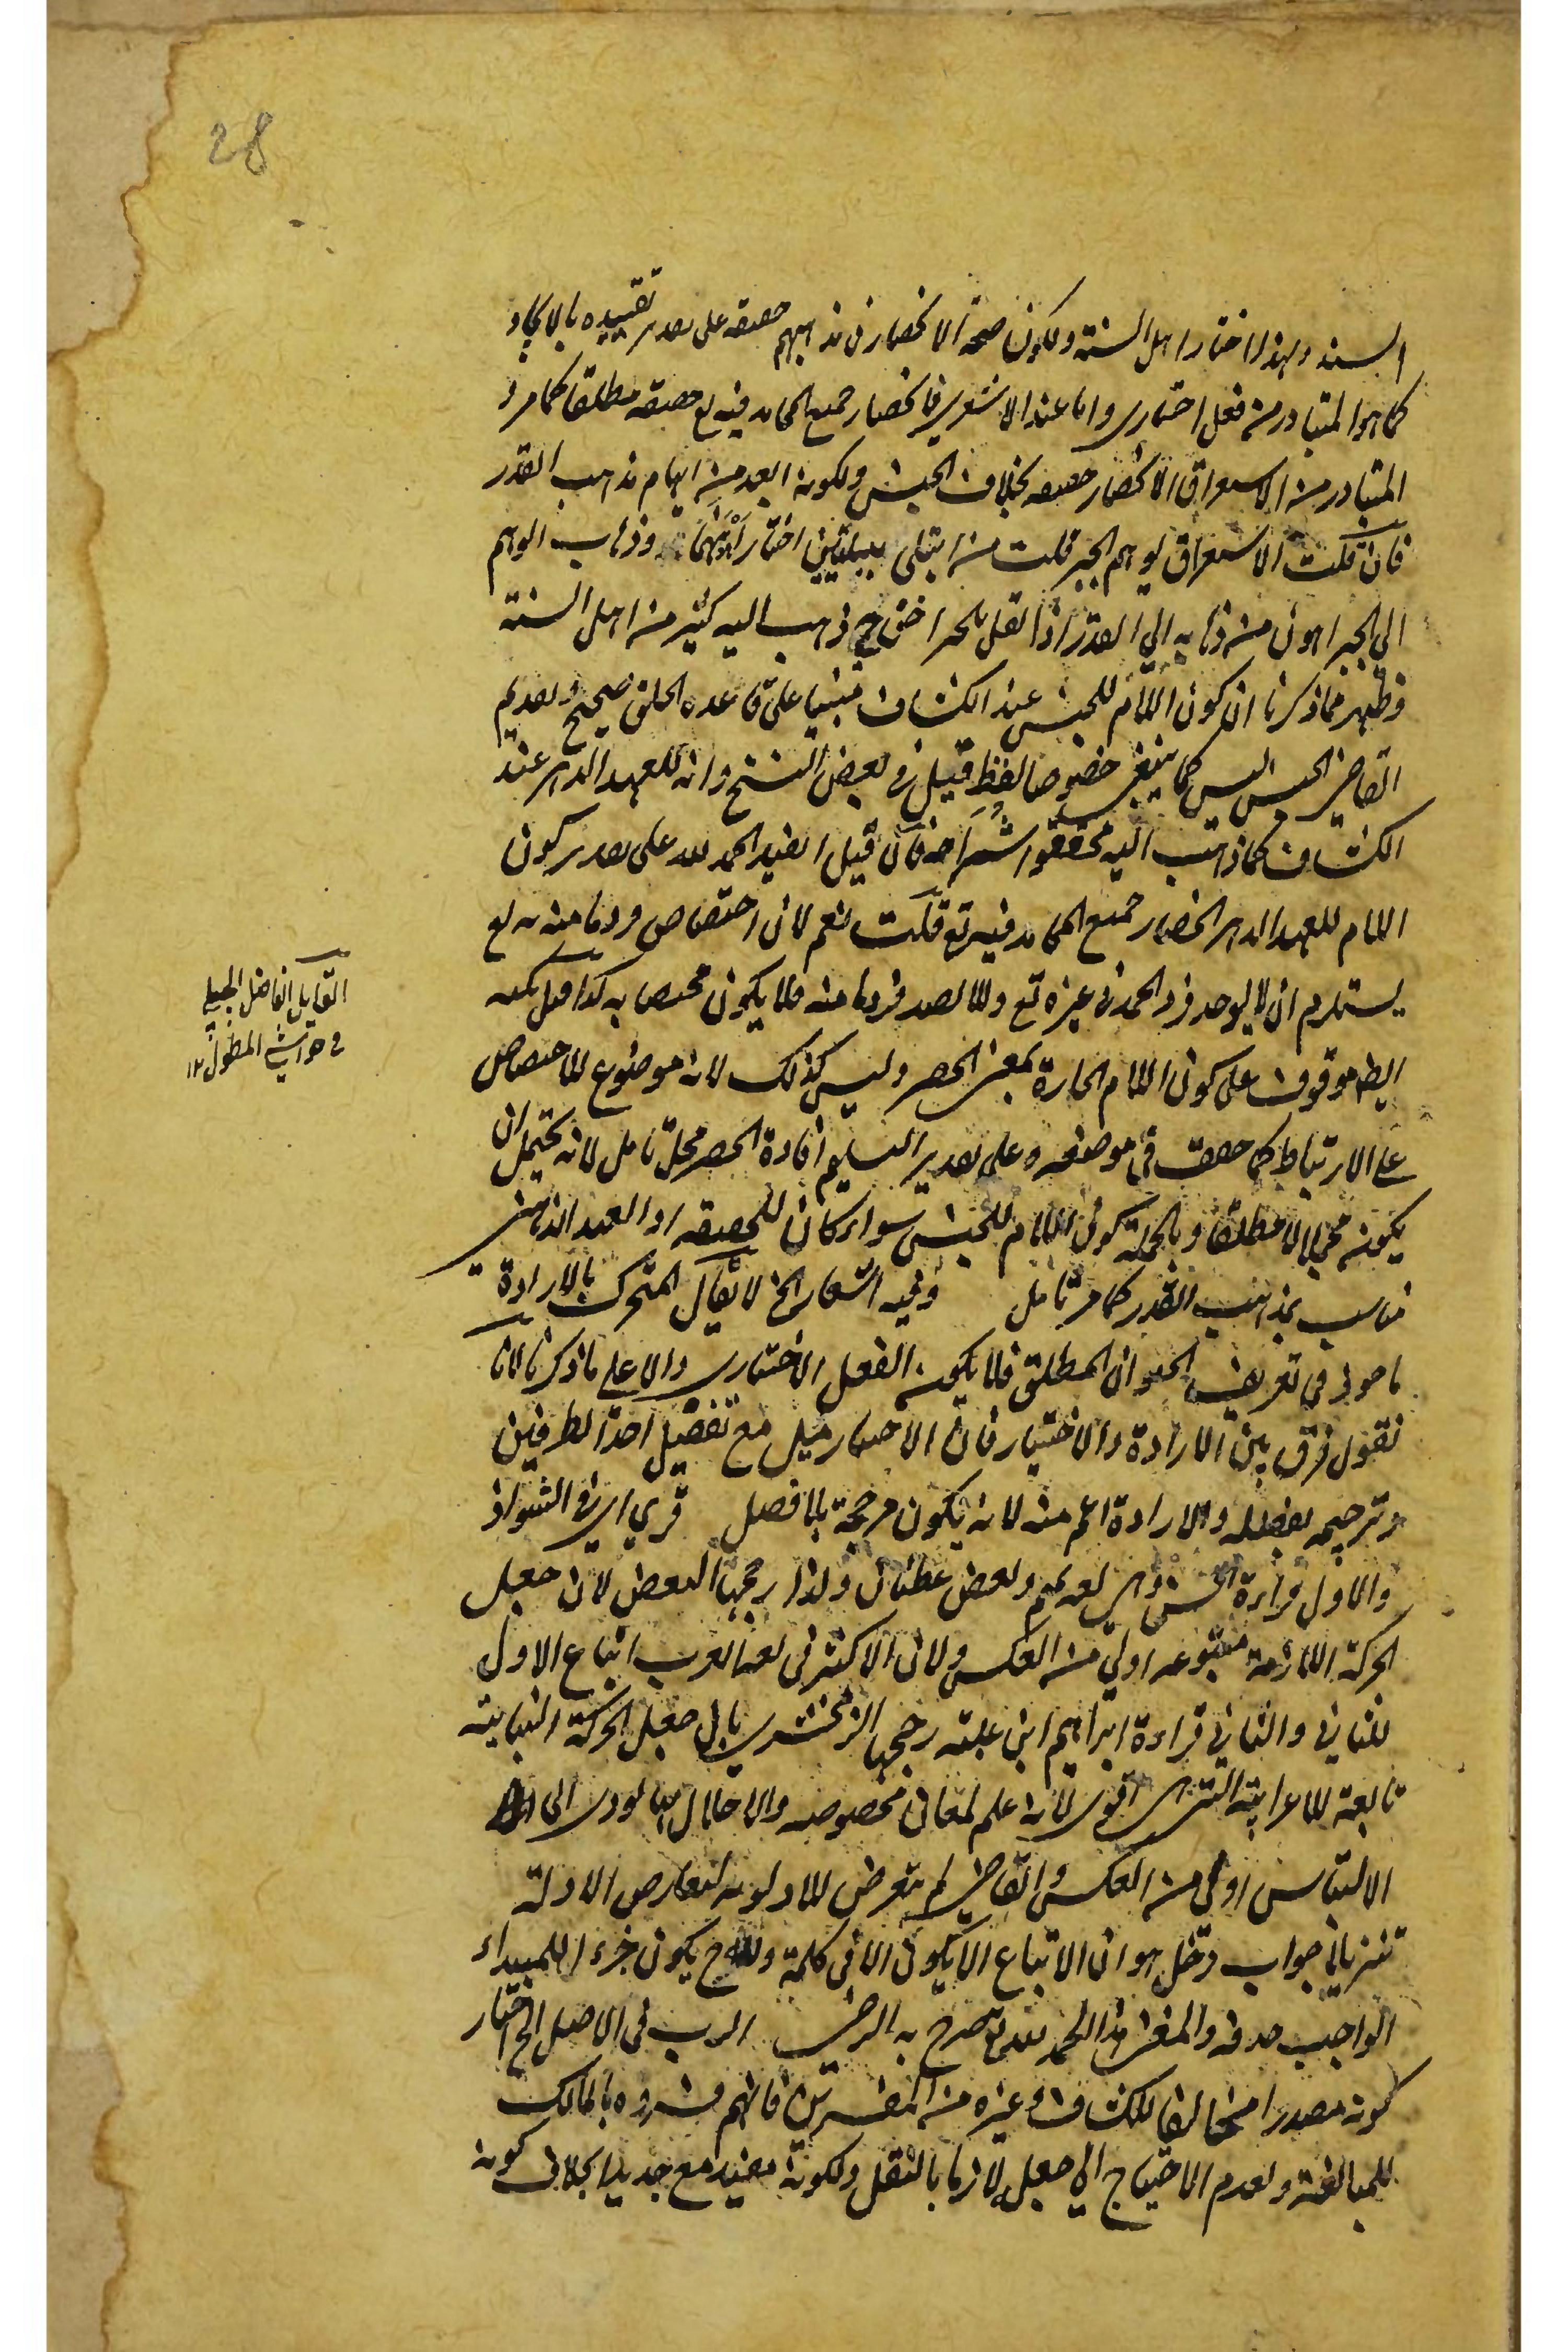 28
السنة ولهذا اختار اهل السنة ولكون صحة الانحصار في مذاهبهم حقيقة على تقدير تقييده بالايجاد
كما هو المتبادر من فعل اختياري واما عند الاشعري فانحصار جميع المحامد فيه تع حقيقة مطلقا كما مر و
المتبادر من الاستغراق الانحصار حقيقة بخلاف الجنس ولكونه ابعد من ايهام مذهب القدر
فان قلت الاستغراق يوهم الجبر قلت من ابتلى ببليتين اختار اهونهما وذهاب الوهم
الى الجبر اهون من ذهابه الى القدر اذا لعل الجبر ذهب اليه كثير من اهل السنة
وظهر مما ذكرنا ان كون اللام للجنس عند الكشاف مبنيا على قاعدة الخلق صحيح وتقديم
القاضي الجنس ليس كما ينبغي خصوصا لفظ قيل في بعض النسخ وانه للعهد الذهني عند
الكشاف كما ذهب اليه محققوا شراحه فان قيل ايفيد الحمد لله على تقدير كون
اللام للعهد الذهني انحصار جميع المحامد فيه تع قلت نعم لان اختصاص فرد ما منه به تع
يستلزم ان لا يوجد فرد الحمد في غيره تع والا لصد فرد ما منه فلا يكون مختصا به كذا قيل لكنه
ايضا موقوف على كون اللام الجارة بمعنى الحصر وليس كذلك لانه موضوع للاختصاص
على الارتباط كما حقق في موضعه وعلى تقدير التسليم افادة الحصر محل تامل لانه يحتمل ان
يكون محمولا مطلقا وبالجملة كون اللام للجنس سواء كان للحقيقة او العهد الذهني
مناسب بمذهب القدر كما مر تامل وفيه اشعار الخ لا يقال المتحرك بالارادة
ماخوذ في تعريف الحيوان المطلق فلا يكون الفعل الاختياري دالا على ما ذكرنا لانا
نقول فرق بين الارادة والاختيار فان الاختيار ميل مع تفضيل احد الطرفين
وترجيحه بفضله والارادة اعم منه لانه يكون مرجحة بلا فضل قري اي في الشواذ
والاول قراءة الحسن وهي لغة تميم وبعض غطفان ولذا رجحها البعض لان جعل
الحركة اللازمة متبوعة اولى من العكس ولان الاكثر في لغة العرب اتباع الاول
للثاني والثاني قراءة ابراهيم ابن عبلة رجحها الزمخشري بان جعل الحركة البنائية
تابعة للاعرابية التي هي اقوى لانه علم لمعان مخصوصة والاخلال بها يودي الى
الالتباس اولى من العكس والقاضي لم يتعرض للاولوية لتعارض الادلة
تنزيلا جواب دخل هو ان الاتباع لا يكون الا في كلمة يكون جزءا للمبتداء
الواجب حذفه والمغني هذا الحمد صرح به الرضي الرب في الاصل الخ اختار
كونه مصدرا مخالفا للكشاف وغيره من المفسرين فانهم فسروه بالمالك
للمبالغة ولعدم الاحتياج الى جعل لازما بالنقل ولكونه مفيد مع جديدا بخلاف كونه
القايل الفاضل الجلبي
في حواشي المطول ١٢